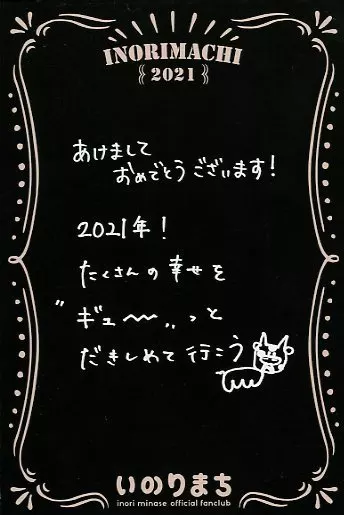 INORIMACHI
2021
あけまして
おめでとうございます!
2021年!
たくさんの幸せを
"ギュ〜〜"っと
だきしめて行こう
いのりまち
inori minase official fanclub